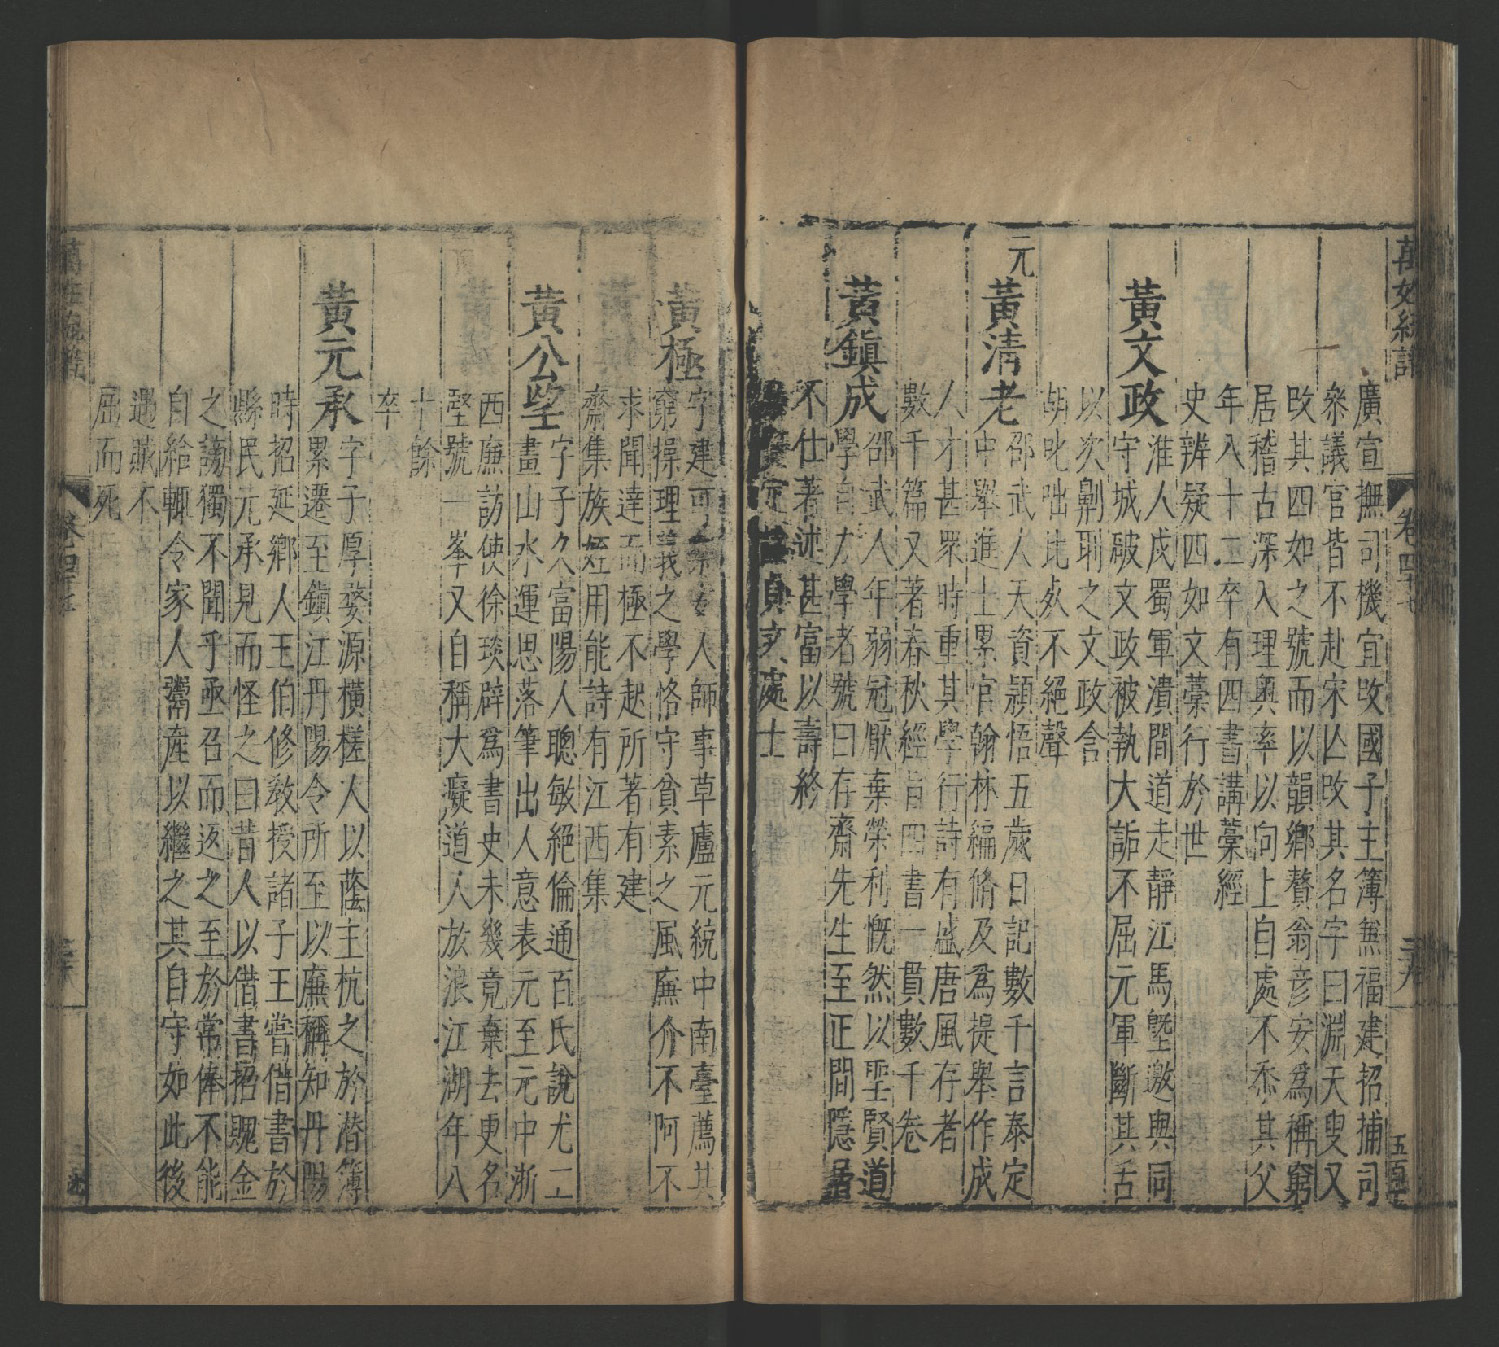 萬姓統譜
卷四十七
廣宣撫司機宜改國子主簿無福建招捕司
叅議官皆不赴宋亾改其名字曰淵天叟又
改其四如之號而以韻鄉贅翁彦安爲稱窮
居稽古深入理奧率以向上自處不忝其父
年八十二卒有四書講藁經
史辨疑四如文藁行於世
黃文政
淮人戍蜀軍潰間道走靜江馬塈邀與同
守城破文政被執大詬不屈元軍斷其舌
以次劓刵之文政含
胡叱咄比死不絕聲
元
黃清老
邵武人天資穎悟五歲日記數千言泰定
中舉進士累官翰林編脩及爲提舉作成
人才甚眾時重其學行詩有盛唐風存者
數千篇又著春秋經旨四書一貫數千卷
黃鎮成
邵武人年弱冠厭棄榮利慨然以聖賢道
學自力學者號曰存齋先生至正間隱居
不仕著述甚富以壽終
定 貞文處士
黃極
字建可 人師事草廬元統中南臺薦其
窮探理義之學恪守貧素之風廉介不阿不
求聞達而極不起所著有建
齋集族姪用能詩有江西集
黃公望
字子久富陽人聰敏絕倫通百氏說尤工
畫山水運思落筆出人意表元至元中浙
西廉訪使徐琰辟爲書史未幾竟棄去更名
堅號一峯又自稱大癡道人放浪江湖年八
十餘
卒
黃元承
字子厚婺源橫槎人以蔭主杭之於潛簿
累遷至鎮江丹陽令所至以廉稱知丹陽
時招延鄉人王伯修敎授諸子王嘗借書於
縣民元承見而怪之曰昔人以借書招賜金
之謗獨不聞乎亟召而返之至於常俸不能
自給輒令家人鬻産以繼之其自守如此後
遇賊不
屈而死
卷四十七